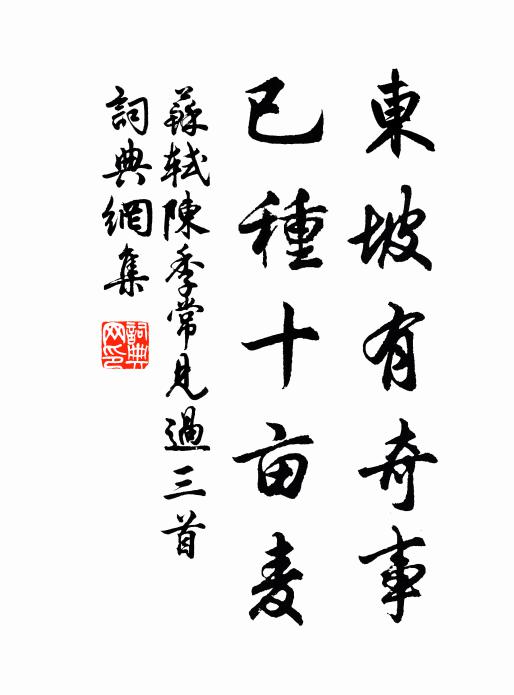 東坡有奇事
已種十亩麦
蘇軾陳季常見過三首
詞典網集
詞典
网印